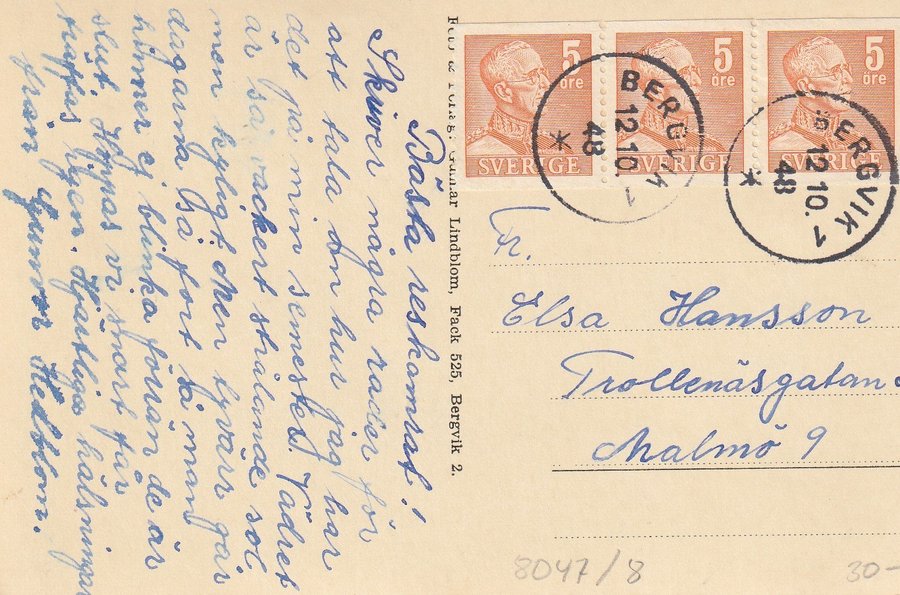 Bästa reskamrat!
Skriver några rader för
att tala om hur jag har
det på min semester. Vädret
är så vackert strålande sol
men kyligt. Men tyvärr går
dagarna så fort så man
hinner ej blinka förrän de är
slut. Hoppas vi snart får
träffas igen. Hjärtliga hälsningar
från Gunvor Hedblom.
Lindblom, Fack 525, Bergvik 2.
5 öre
SVERIGE
5 öre
SVERIGE
5 öre
SVERIGE
BERGVIK 1
12.10.
48
BERGVIK 1
12 10.
48
Fr.
Elsa Hansson
Trollenäsgatan
Malmö 9
8047/8
30-